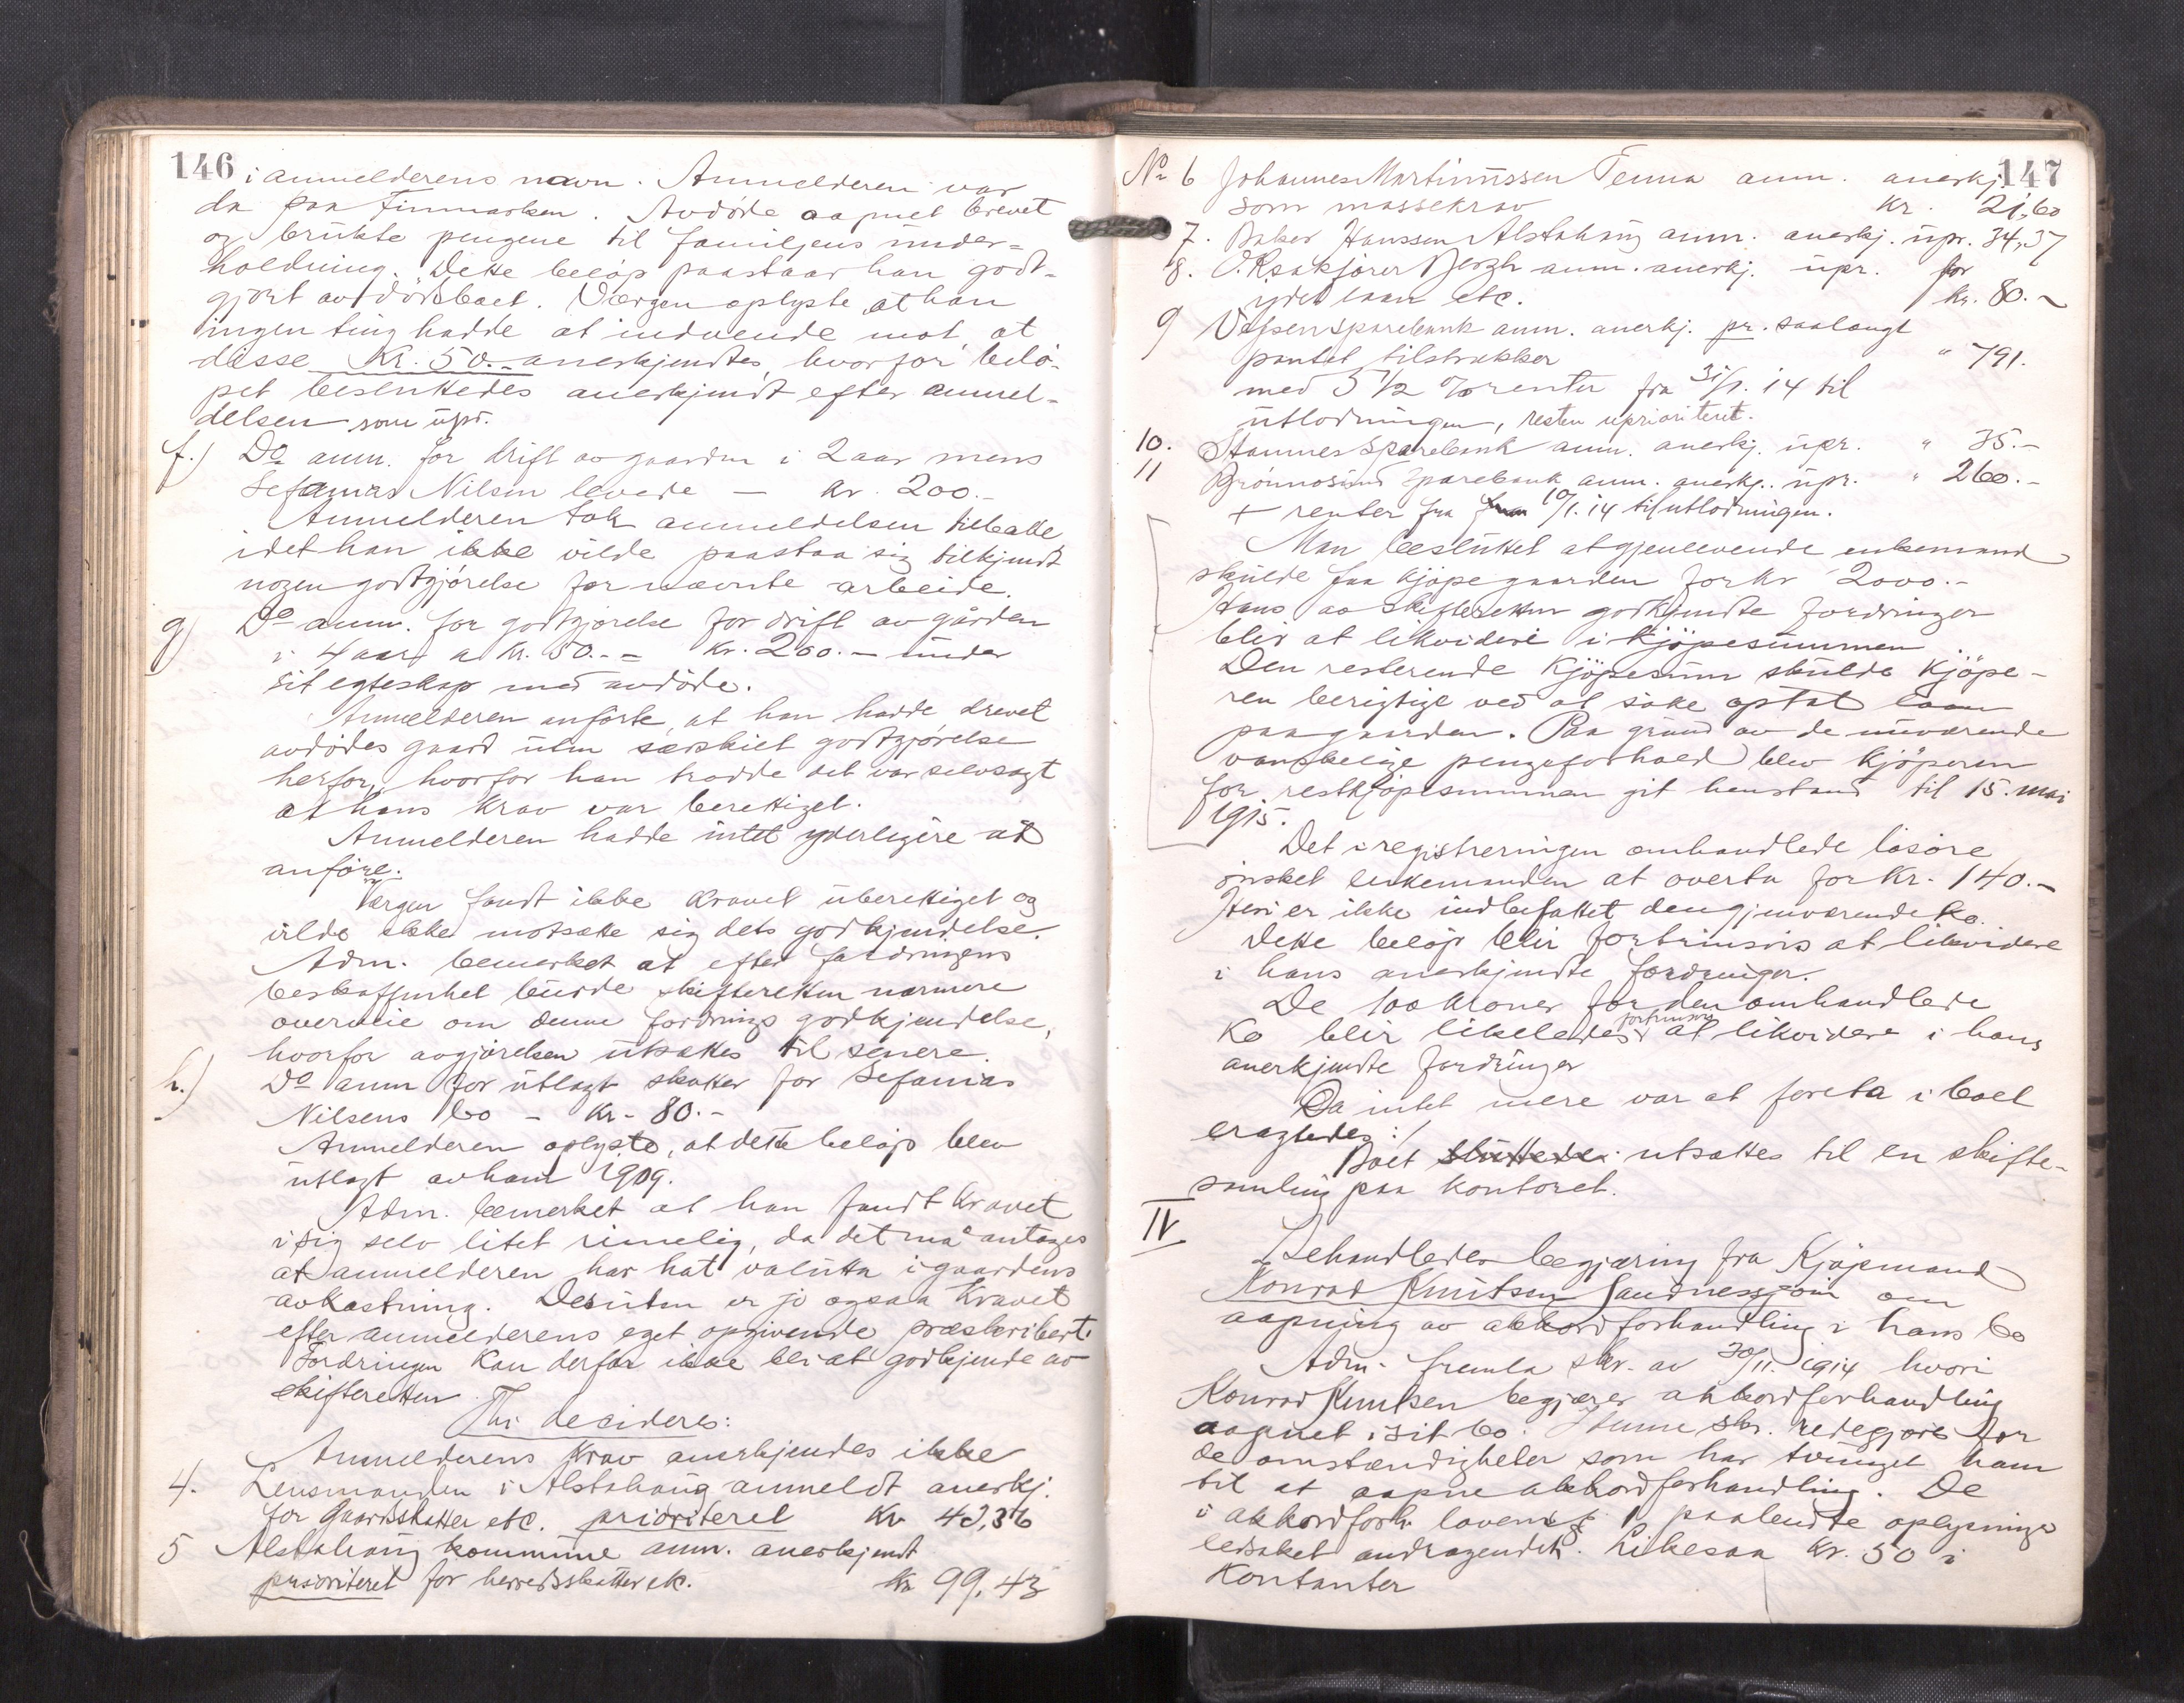 146
i anmelderens navn. Anmelderen var
da paa Finmarken. Avdöde aapnet brevet
og brukte pengene til familjens under=
holdning. Dette belöp paastaar han godt-
gjort av dödsboet. Værgen oplyste at han
ingen ting hadde at indvende mot at
disse Kr. 50.- anerkjendtes, hvorfor belö-
pet besluttedes anerkjendt efter anmel-
delsen som upr.
f.) Do anm. for drift av gaarden i 2 aar mens
Sefanias Nilsen levede — kr. 200.-
Anmelderen tok anmeldelsen tilbake
idet han ikke vilde paastaa sig tilkjendt
nogen godtgjörelse for nævnte arbeide.
g) Do anm. for godtgjörelse for drift av gården
i 4 aar a kr. 50.- = Kr. 200.- under
sit egteskap med avdöde.
Anmelderen anförte, at han hadde drevet
avdödes gaard uten særskilt godtgjörelse
herfor, hvorfor han trodde det var selvsagt
at hans krav var berettiget.
Anmelderen hadde intet yderligere at
anföre.
Værgen fandt ikke kravet uberettiget og
vilde ikke motsætte sig dets godkjendelse.
Adm. bemerket at efter fordringens
beskaffenhet burde skifteretten nærmere
overveie om denne fordrings godkjendelse,
hvorfor avgjörelsen utsættes til senere.
h.) Do anm for utlagt skatter for Sefanias
Nilsens bo - kr. 80.-
Anmelderen oplyste, at dette belöp blev
utlagt av ham 1909.
Adm. bemerket at han fandt kravet
i sig selv litet rimelig, da det må antages
at anmelderen har hat valuta i gaardens
avkastning. Desuten er jo ogsaa kravet
efter anmelderens eget opgivende præskribert.
Fordringen kan derfor ikke bli at godkjende av
skifteretten.
Thi decideres:
Anmelderens krav anerkjendes ikke
4. Lensmanden i Alstahaug anmeldt anerkj.
for Gaardsskatter etc. prioriteret Kr 43,36
5 Alstahaug kommune anm. anerkjendt
prioriteret for herredsskatter etc. Kr 99,43
147
No 6 Johannes Martinussen Tenna anm. anerkj.
som massekrav kr. 21,60
7. Baker Hanssen Alstahaug anm. anerkj. upr. 34,37
8. O.R.sakförer Bergh anm. anerkj. upr. for
ydet laan etc. kr. 80.-
9 Vefsen sparebank anm. anerkj. pr. saalangt
pantet tilstrækker " 791.
med 5 1/2 % renter fra 31/1. 14 til
utlodningen, resten uprioriteret.
10. Stamnes Sparebank anm. anerkj. upr. " 35.-
11 Brönnösund Sparebank anm. anerkj. upr. " 260.-
+ renter fra 10/1. 14 til utlodningen.
Man besluttet at gjenlevende enkemand
skulde faa kjöpe gaarden for kr 2000.-
Hans av skifteretten godkjendte fordringer
blir at likvidere i kjöpesummen
Den resterende kjöpesum skulde kjöpe-
ren berigtige ved at söke optat laan
paa gaarden. Paa grund av de nuværende
vanskelige pengeforhold blev kjöperen
for restkjöpesummen git henstand til 15. mai
1915.
Det i registreringen omhandlede lösöre
önsket enkemanden at overta for kr. 140.-
Heri er ikke indbefattet den gjenværende ko.
Dette belöp blir fortrinsvis at likvidere
i hans anerkjendte fordringer.
De 100 kroner for den omhandlede
ko blir likeledes fortrinsvis at likvidere i hans
anerkjendte fordringer
Da intet mere var at foreta i boet
eragtedes:
Boet sluttede utsættes til en skifte-
samling paa kontoret.
IV
Behandledes begjæring fra Kjöpmand
Konrad Knutsen Sandnessjöen om
aapning av akkordforhandling i hans bo
Adm. fremla skr. av 30/11. 1914 hvori
Konrad Knutsen begjærer akkordforhandling
aapnet i sit bo. I denne skr. redegjöres for
de omstændigheter som har tvunget ham
til at aapne akkordforhandling. De
i akkordforh. lovens § 1 paabudte oplysninger
ledsaket andragendet. Likesaa kr. 50 i
Kontanter